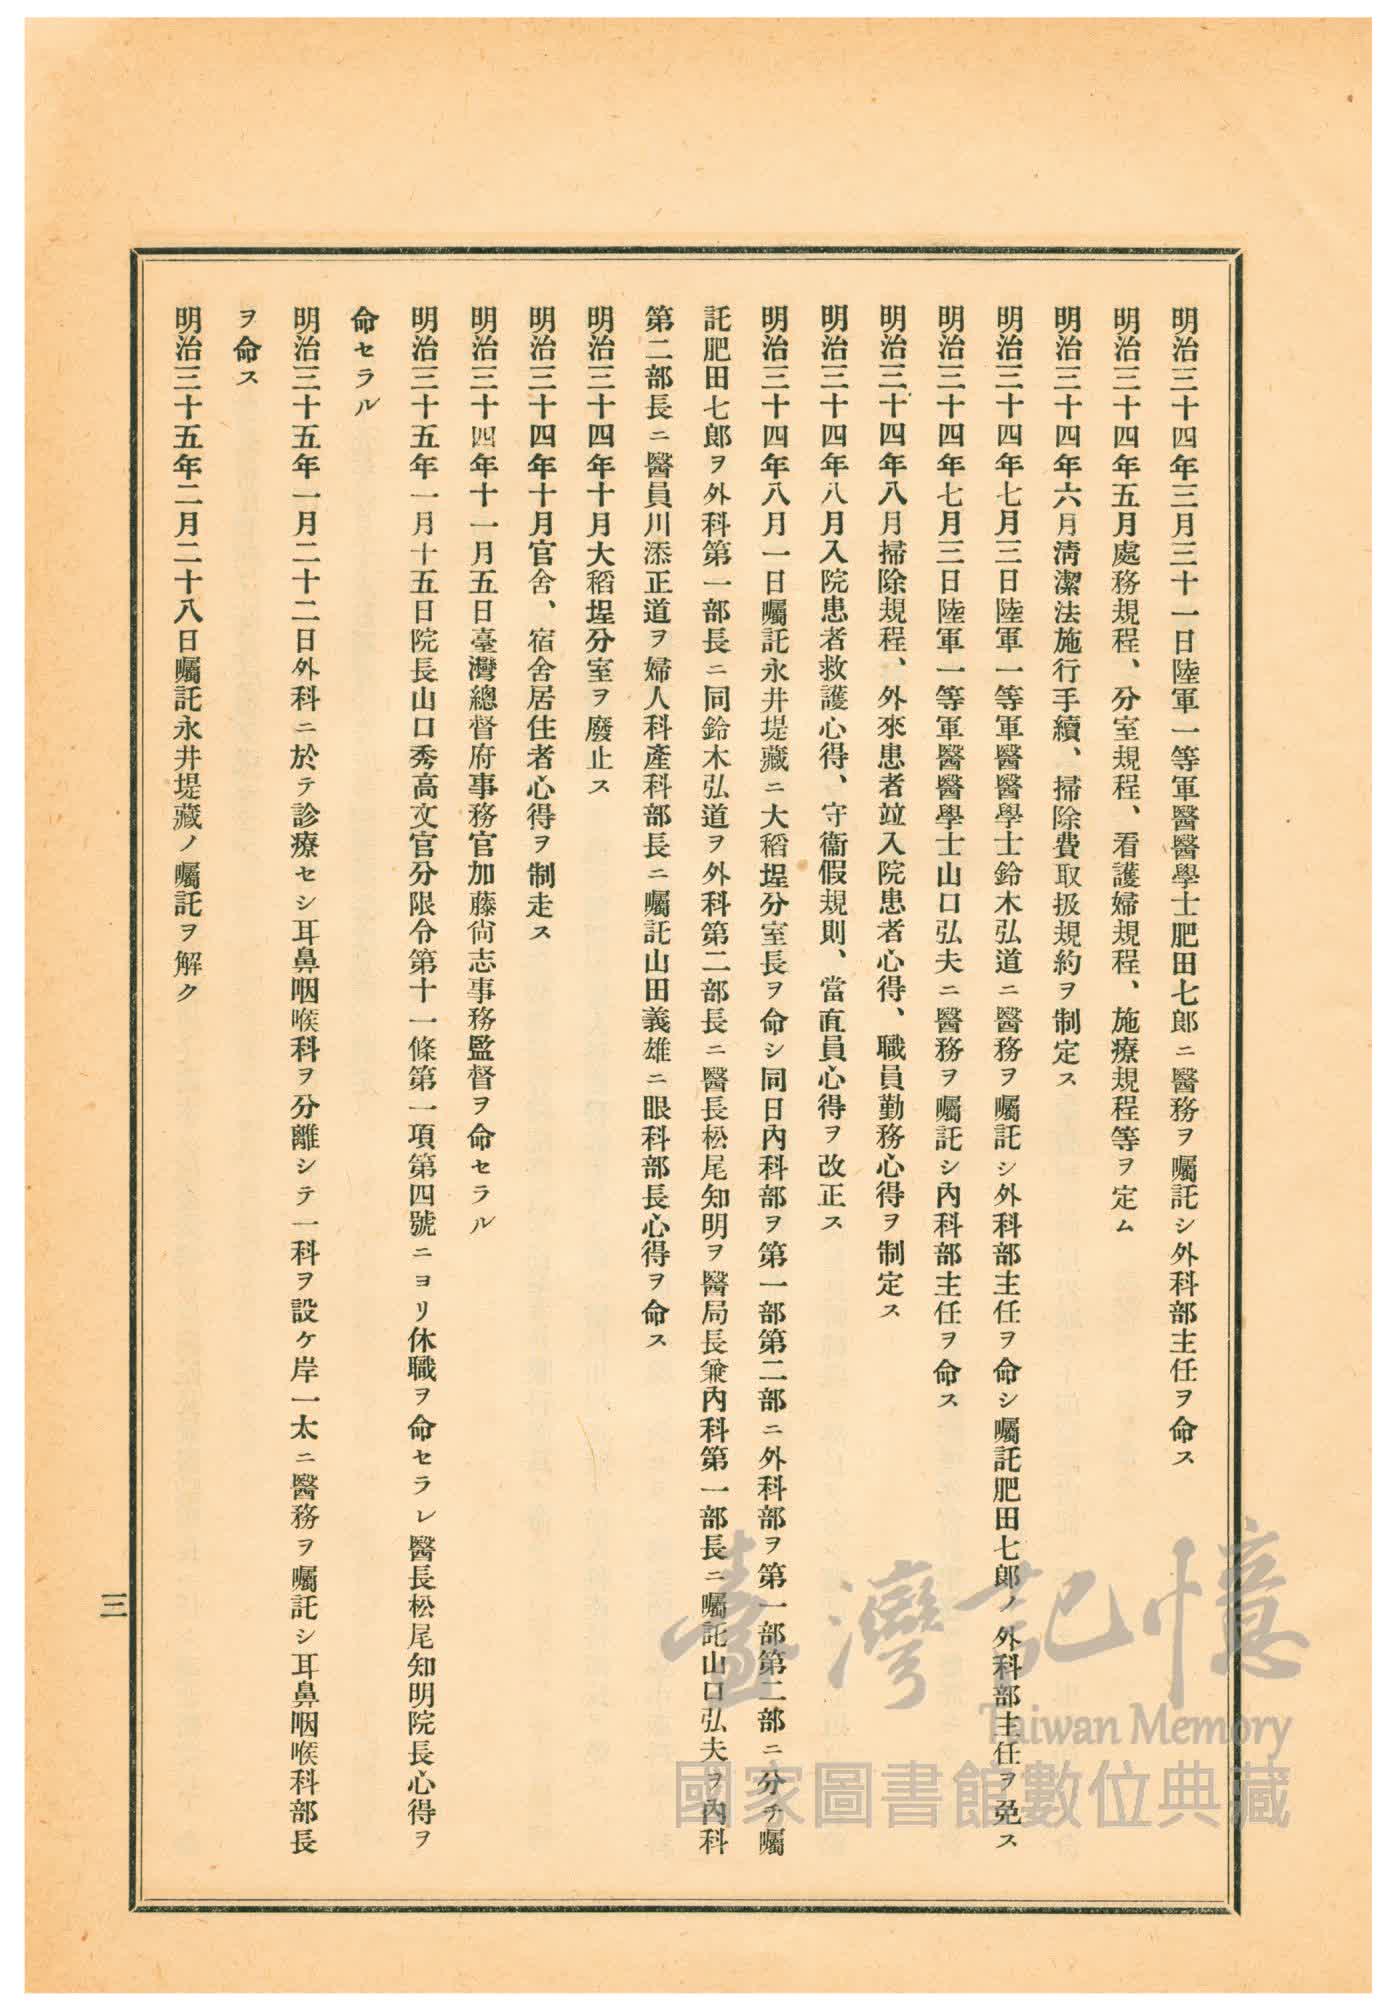 明治三十四年三月三十一日陸軍一等軍醫醫學士肥田七郎ニ醫務ヲ囑託シ外科部主任ヲ命ス
明治三十四年五月處務規程、分室規程、看護婦規程、施療規程等ヲ定ム
明治三十四年六月淸潔法施行手續、掃除費取扱規約ヲ制定ス
明治三十四年七月三日陸軍一等軍醫醫學士鈴木弘道ニ醫務ヲ囑託シ外科部主任ヲ命シ囑託肥田七郎ノ外科部主任ヲ免ス
明治三十四年七月三日陸軍一等軍醫醫學士山口弘夫ニ醫務ヲ囑託シ內科部主任ヲ命ス
明治三十四年八月掃除規程、外來患者竝入院患者心得、職員勤務心得ヲ制定ス
明治三十四年八月入院患者救護心得、守衞假規則、當直員心得ヲ改正ス
明治三十四年八月一日囑託永井堤藏ニ大稻埕分室長ヲ命シ同日內科部ヲ第一部第二部ニ外科部ヲ第一部第二部ニ分チ囑
託肥田七郎ヲ外科第一部長ニ同鈴木弘道ヲ外科第二部長ニ醫長松尾知明ヲ醫局長兼內科第一部長ニ囑託山口弘夫ヲ內科
第二部長ニ醫員川添正道ヲ婦人科產科部長ニ囑託山田義雄ニ眼科部長心得ヲ命ス
明治三十四年十月大稻埕分室ヲ廢止ス
明治三十四年十月官舍、宿舍居住者心得ヲ制走ス
明治三十四年十一月五日臺灣總督府事務官加藤尙志事務監督ヲ命セラル
明治三十五年一月十五日院長山口秀高文官分限令第十一條第一項第四號ニヨリ休職ヲ命セラレ醫長松尾知明院長心得ヲ
命セラル
明治三十五年一月二十二日外科ニ於テ診療セシ耳鼻咽喉科ヲ分離シテ一科ヲ設ケ岸一太ニ醫務ヲ囑託シ耳鼻咽喉科部長
ヲ命ス
明治三十五年二月二十八日囑託永井堤藏ノ囑託ヲ解ク
三
臺灣記憶
Taiwan Memory
國家圖書館數位典藏